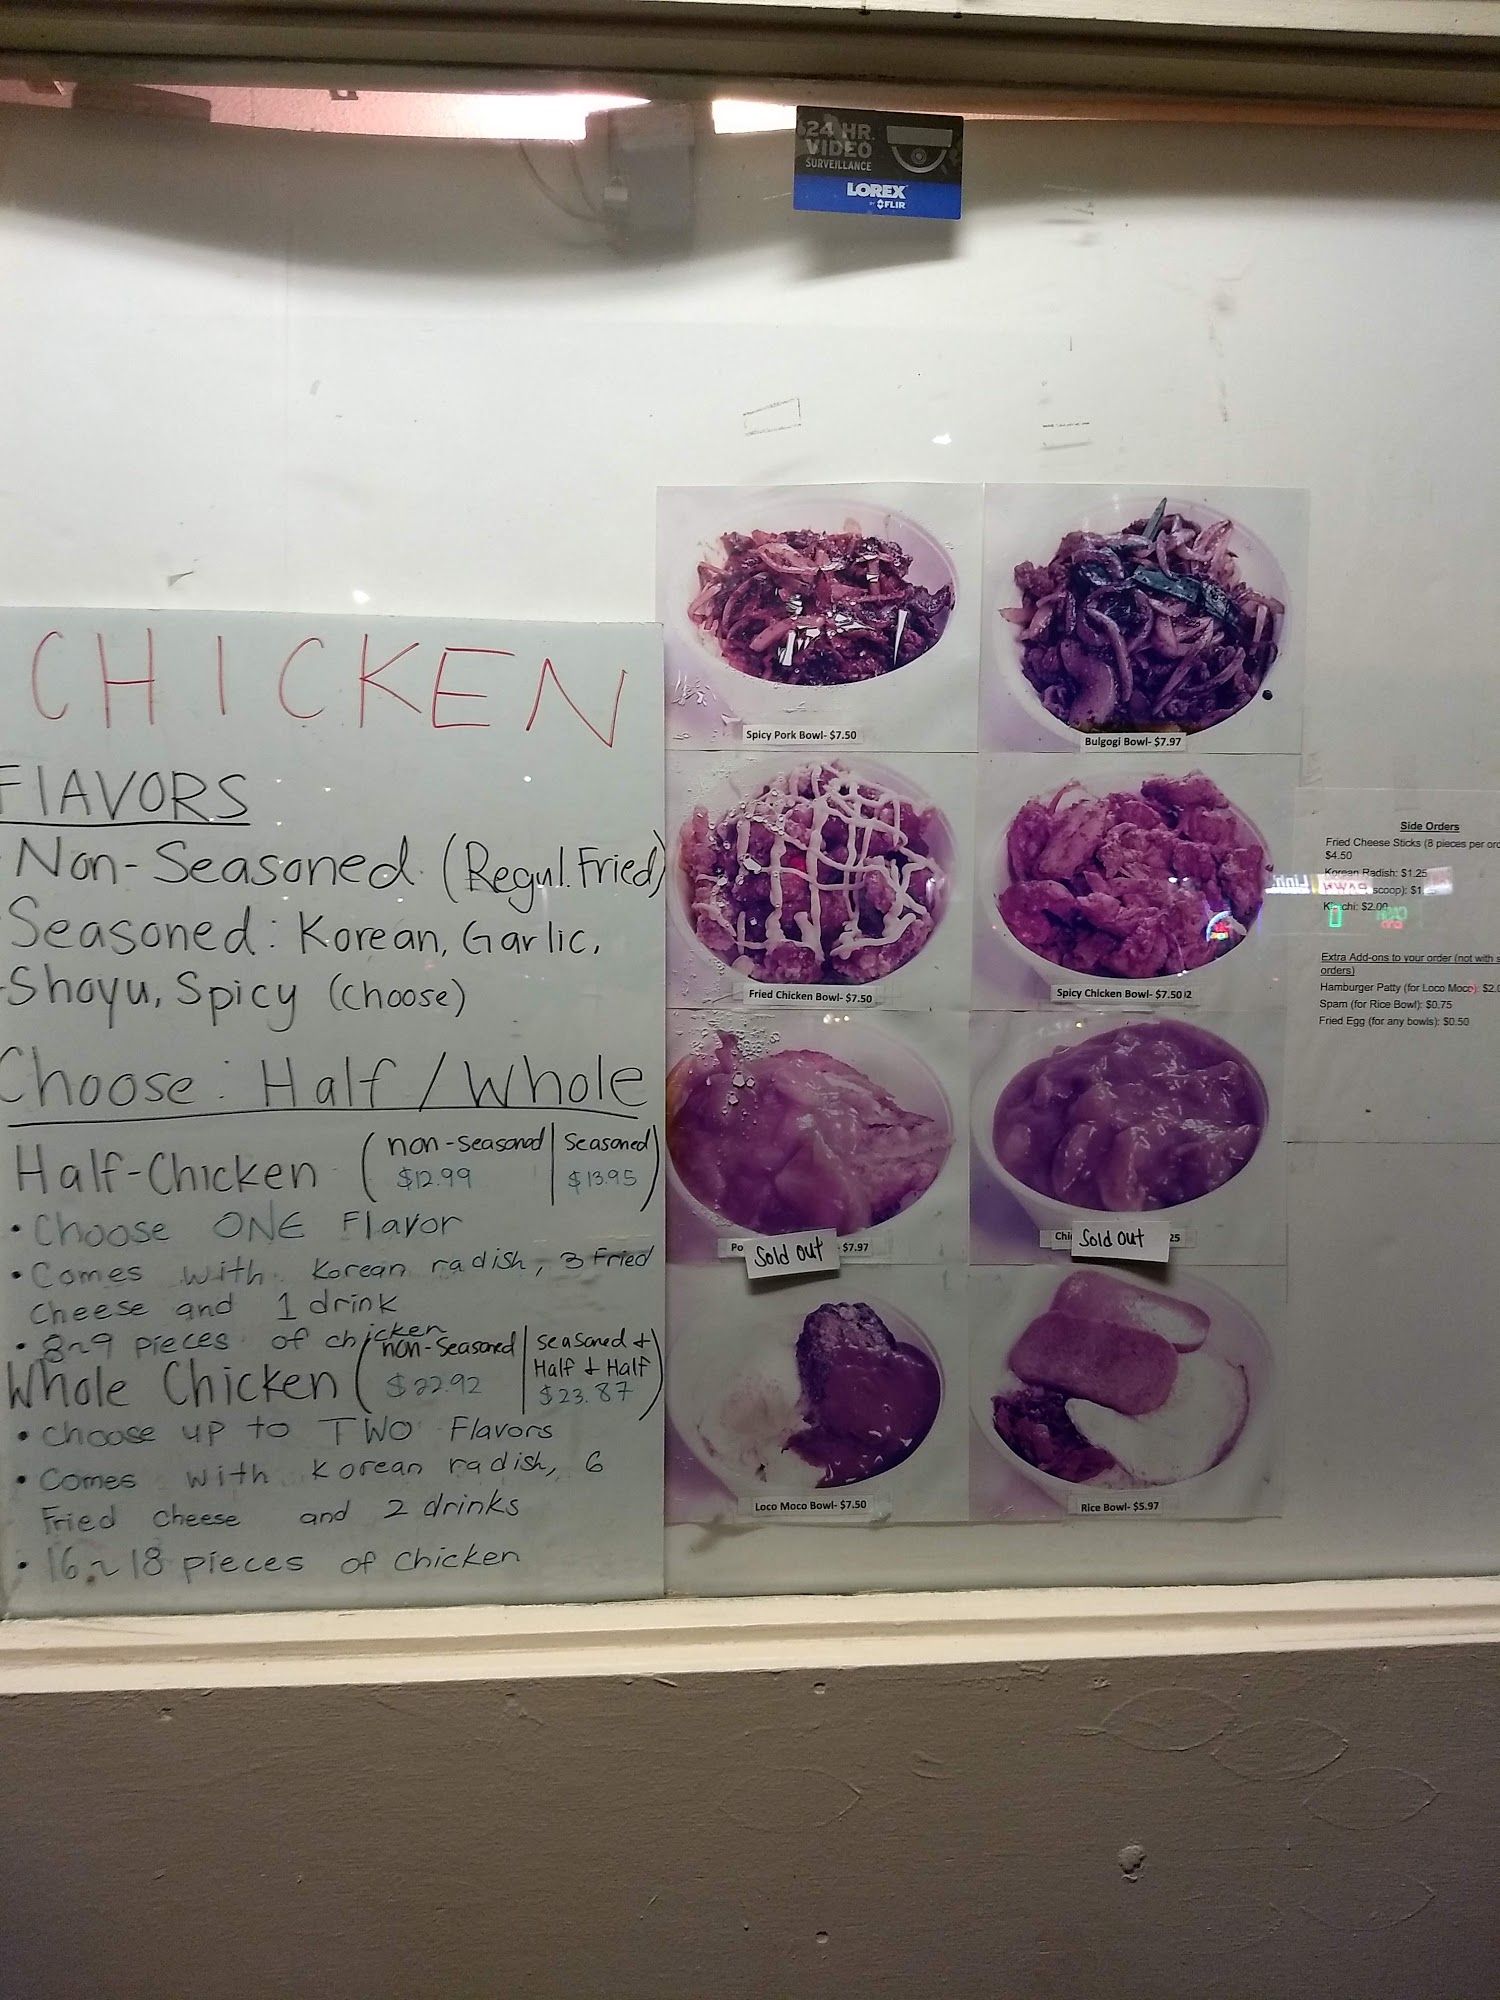 24 HR.
VIDEO
SURVEILLANCE
LOREX
BY FLIR
CHICKEN
FLAVORS
Non-Seasoned (Regul. Fried)
Seasoned: Korean, Garlic,
Shoyu, Spicy (choose)
Choose: Half / Whole
Half-Chicken (non-seasoned | seasoned)
$12.99 $13.95
• Choose ONE Flavor
• Comes with Korean radish, 3 Fried
Cheese and 1 drink
• 8~9 pieces of chicken
Whole Chicken (non-seasoned | seasoned +
Half + Half)
$22.92 $23.87
• choose up to TWO Flavors
• Comes with Korean radish, 6
Fried cheese and 2 drinks
• 16~18 pieces of chicken
Spicy Pork Bowl- $7.50
Bulgogi Bowl- $7.97
Fried Chicken Bowl- $7.50
Spicy Chicken Bowl- $7.50
Sold out - $7.97
Sold out 25
Loco Moco Bowl- $7.50
Rice Bowl- $5.97
Side Orders
Fried Cheese Sticks (8 pieces per
$4.50
Korean Radish: $1.25
scoop):
$2.00
Extra Add-ons to your order (not with
orders)
Hamburger Patty (for Loco Moco):
Spam (for Rice Bowl): $0.75
Fried Egg (for any bowls): $0.50